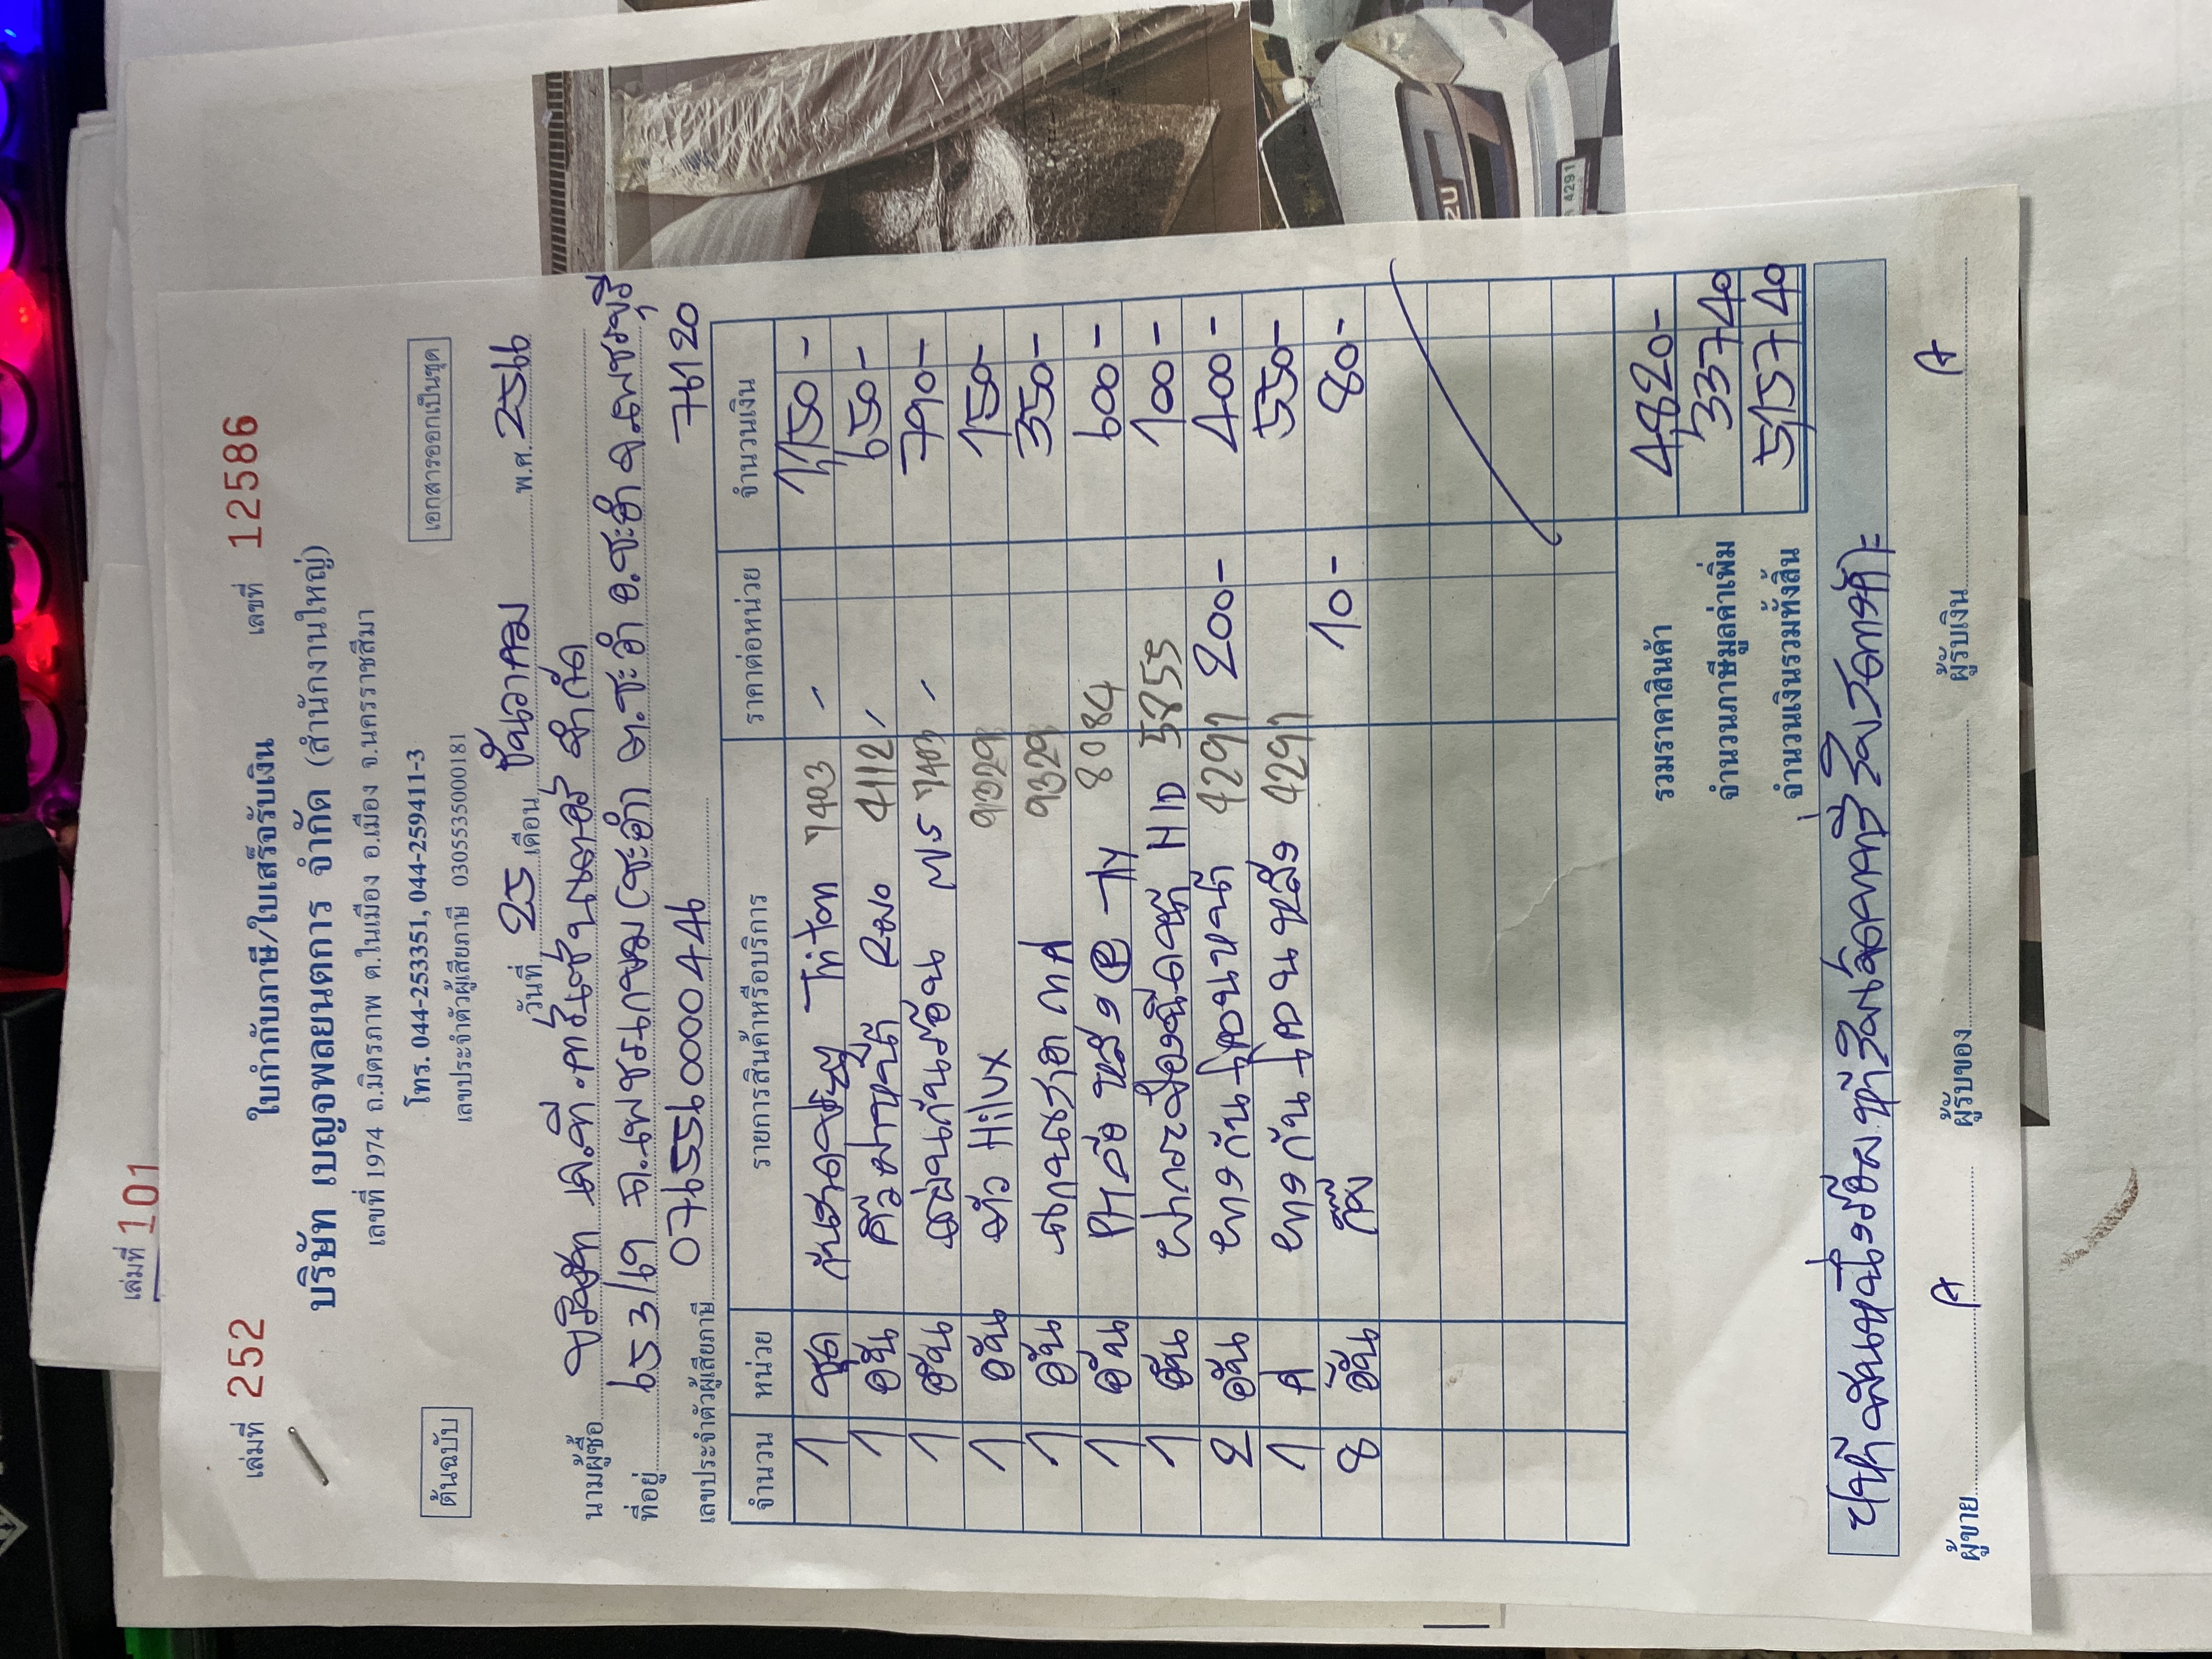 เล่มที่ 101
เล่มที่ 252
ใบกำกับภาษี/ใบเสร็จรับเงิน
เลขที่ 12586
บริษัท เบญจพลยนตการ จำกัด (สำนักงานใหญ่)
เลขที่ 1974 ถ.มิตรภาพ ต.ในเมือง อ.เมือง จ.นครราชสีมา
ต้นฉบับ
โทร. 044-253351, 044-259411-3
เอกสารออกเป็นชุด
เลขประจำตัวผู้เสียภาษี 0305535000181
วันที่ 25 เดือน ธันวาคม พ.ศ. 2566
นามผู้ซื้อ บริษัท เค.ที. จำกัด
ที่อยู่ 653/ ถ.เพชรเกษม (ชะอำ) ต.ชะอำ อ.ชะอำ จ.เพชรบุรี
เลขประจำตัวผู้เสียภาษี 0765560000446 76120
จำนวน หน่วย รายการสินค้าหรือบริการ ราคาต่อหน่วย จำนวนเงิน
1 ชุด กันสาด Triton 7403 1,150 -
1 อัน คิ้วฝาหน้า 4112 650 -
1 อัน 7403 790 -
1 อัน Hilux 9329 150 -
1 อัน 9329 350 -
1 อัน 8084 600 -
1 อัน HID 5855 100 -
2 อัน ยางกันโคลนหน้า 4291 200 - 400 -
1 ยางกันโคลนหลัง 4291 550 -
8 อัน กิ๊บ 10 - 80 -
รวมราคาสินค้า 4,820 -
จำนวนภาษีมูลค่าเพิ่ม 337 40
จำนวนเงินรวมทั้งสิ้น 5,157 40
ห้าพันหนึ่งร้อยห้าสิบเจ็ดบาทสี่สิบสตางค์
ผู้ขาย ผู้รับของ ผู้รับเงิน
4291